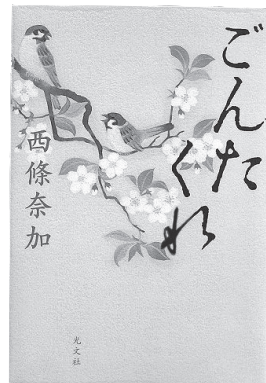 ごんた
くれ
西條奈加
光文社